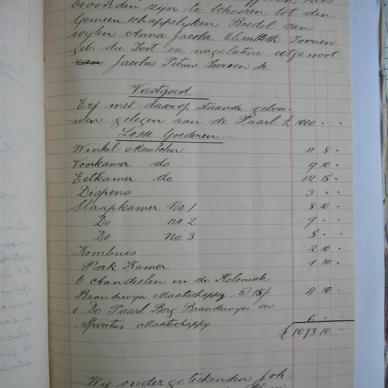 bevonden zijn te behooren tot den
Gemeenschappelyken Boedel van
wylen Anna Jacoba Elizabeth
geb. du Toit en nagelatene echtgenoot
Jacobus Petrus
Vastgoed
Erf met daarop staande gebou-
wen gelegen aan de Paarl £ 1000 . .
Losse Goederen:-
Winkel Meubelen 11 5 .
Voorkamer do 9 10 .
Eetkamer do 12 15 .
Dispens 3 . .
Slaapkamer No. 1 8 10 .
Do no 2 9 . .
Do No 3 5 . .
Kombuis 2 10 .
Pak Kamer 1 10 .
6 Aandeelen in de Koloniale
Brandewyn Maatschappy @ 15/ 4 10 .
1 Do Paarl Berg Brandewyn en
Spiritus Maatschappy 6 . .
£ 1073 10 -
Wij ondergeteekenden Joh